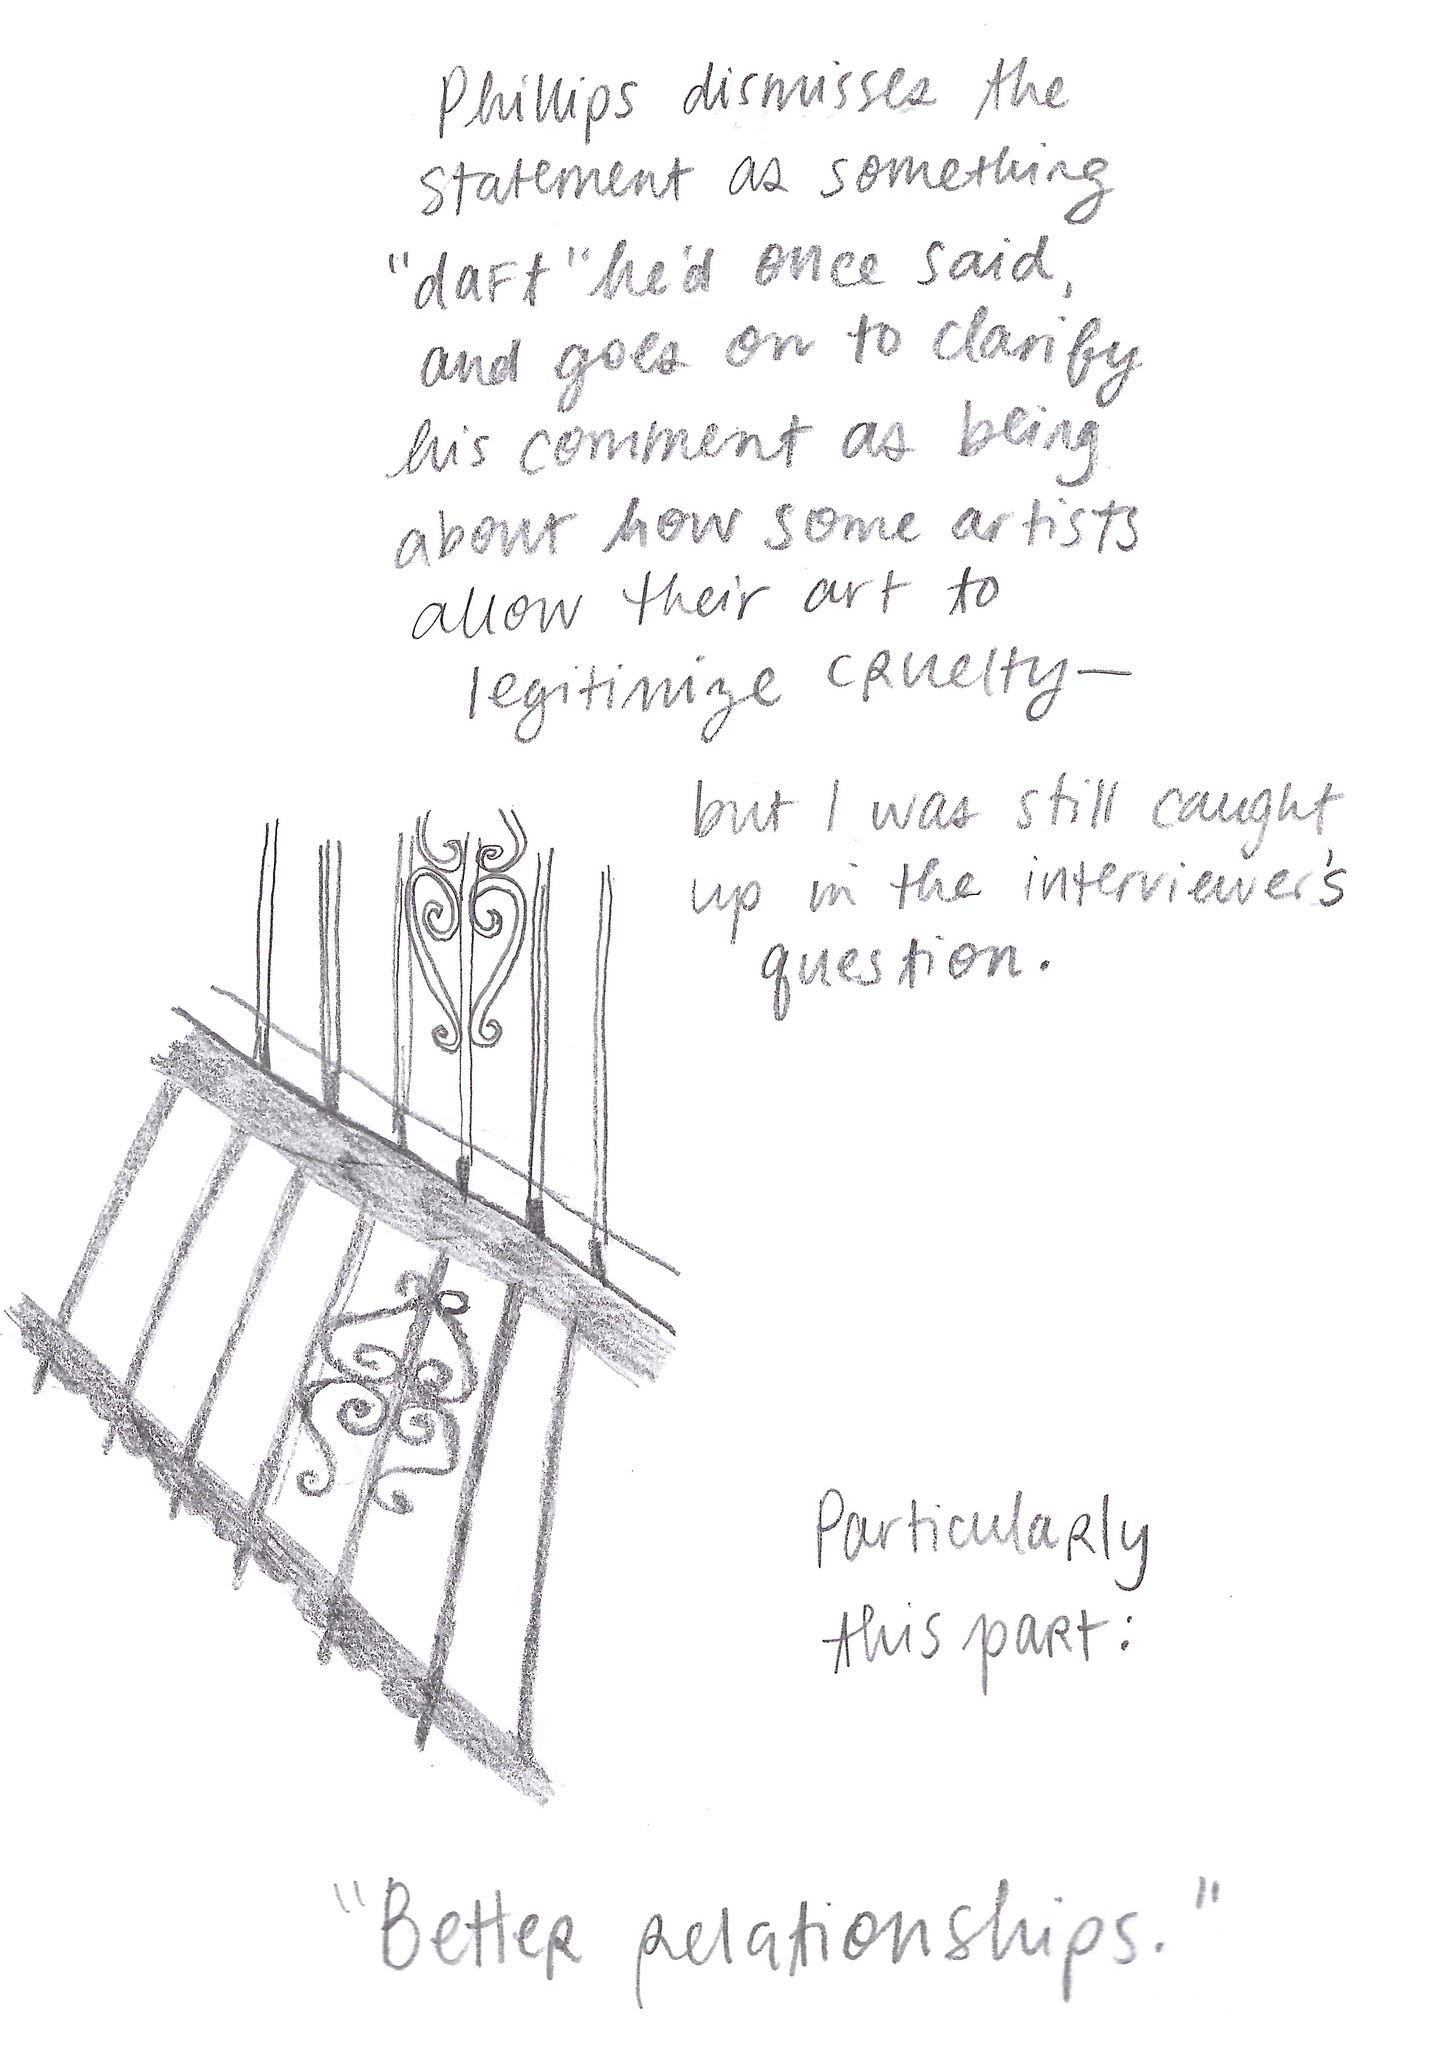 Phillips dismisses the
statement as something
"daft" he'd once said,
and goes on to clarify
his comment as being
about how some artists
allow their art to
legitimize cruelty—
but I was still caught
up in the interviewer's
question.
Particularly
this part:
"Better relationships."